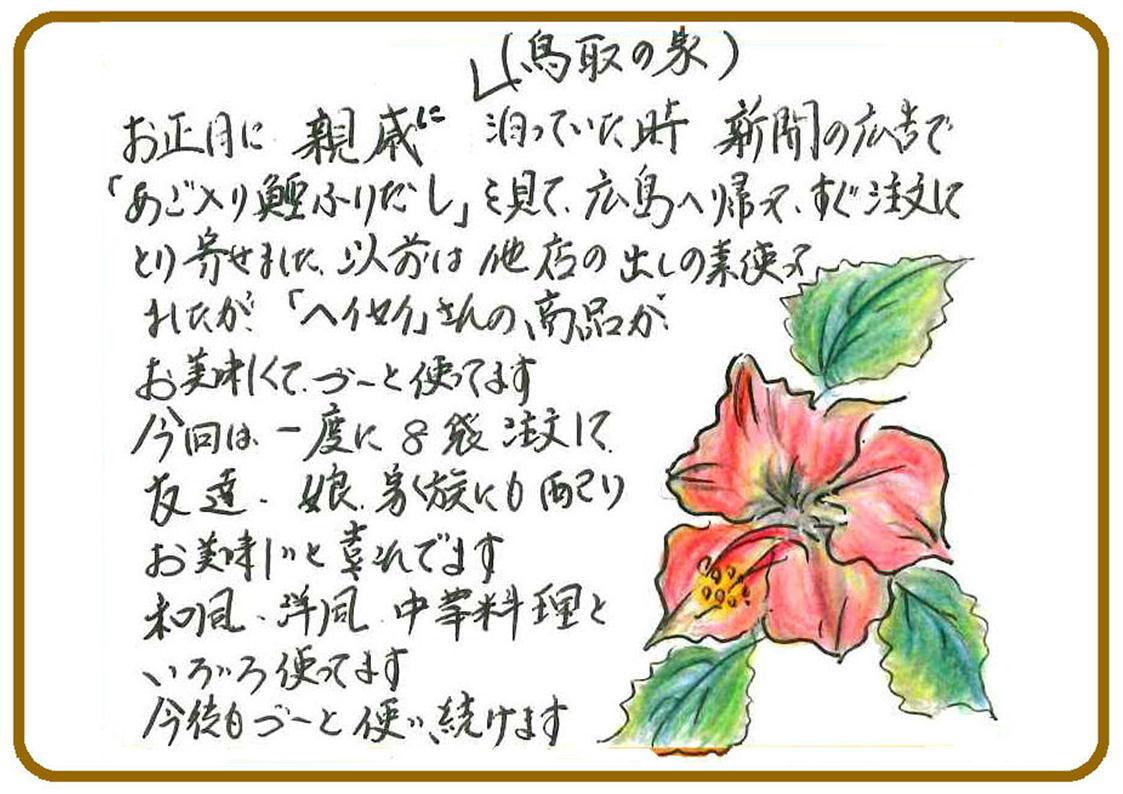 (鳥取の家)
お正月に 親戚に 泊っていた時 新聞の広告で
「あご入り鰹ふりだし」を見て、広島へ帰って、すぐ注文して
とり寄せました、以前は 他店の 出しの素使って
ましたが、「ヘイセイ」さんの、商品が
お美味しくて、づーと使ってます
今回は、一度に 8袋 注文して
友達、娘、家族にも配り
お美味しいと喜れてます
和風、洋風、中華料理と
いろいろ使ってます
今後もづーと使い続けます